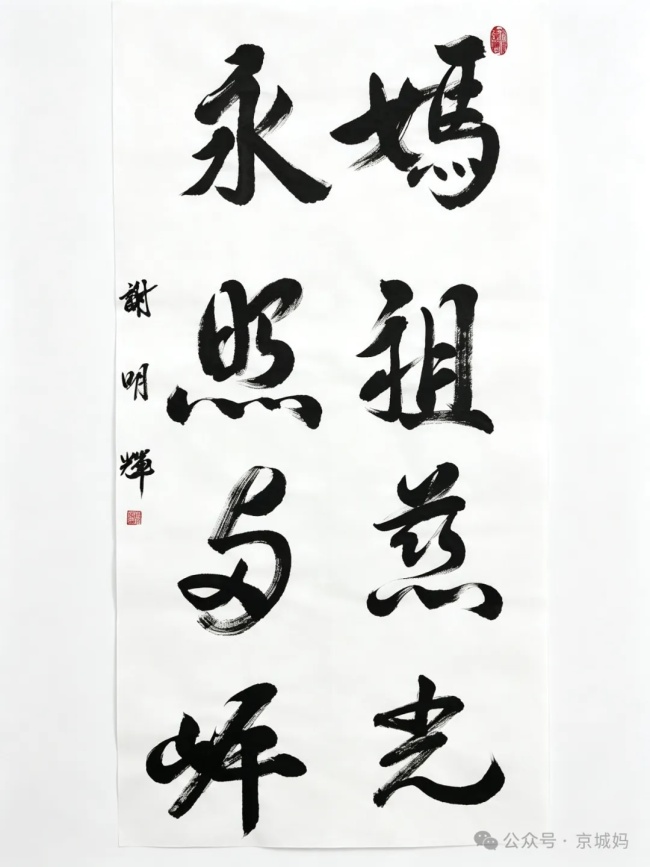 媽祖慈光
永照両岸
謝明輝
公众号·京城妈